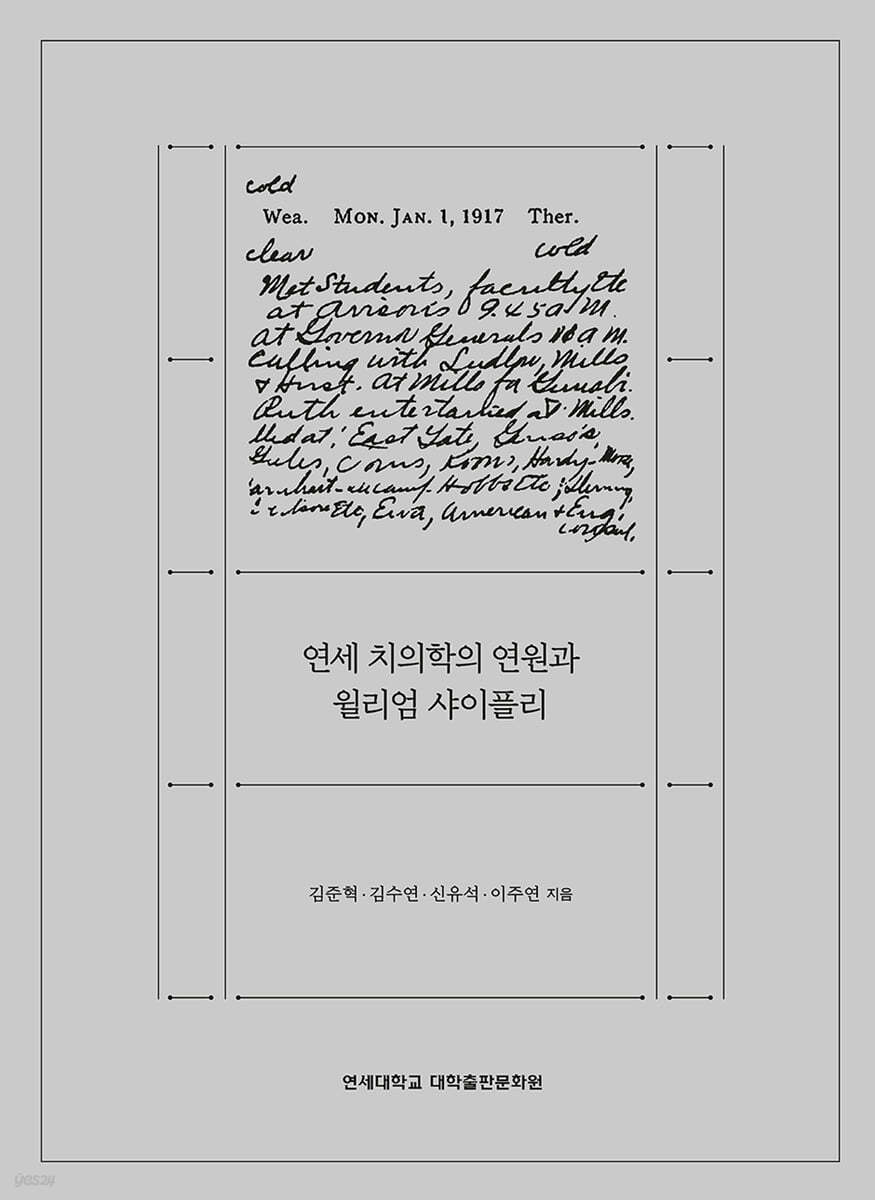 cold
Wea. MON. JAN. 1, 1917 Ther.
clear cold
Met Students, faculty etc
at Avison's 9.45 a.M.
at Governor Generals 10 a m.
Calling with Ludlow, Mills
& Hirst. At Mills for
Ruth entertained at Mills.
East Gate,
Coens, Koons, Hardy
Hobbs etc
etc, Ewa, American & Eng.
Consul.
연세 치의학의 연원과
윌리엄 샤이플리
김준혁·김수연·신유석·이주연 지음
연세대학교 대학출판문화원
yes24